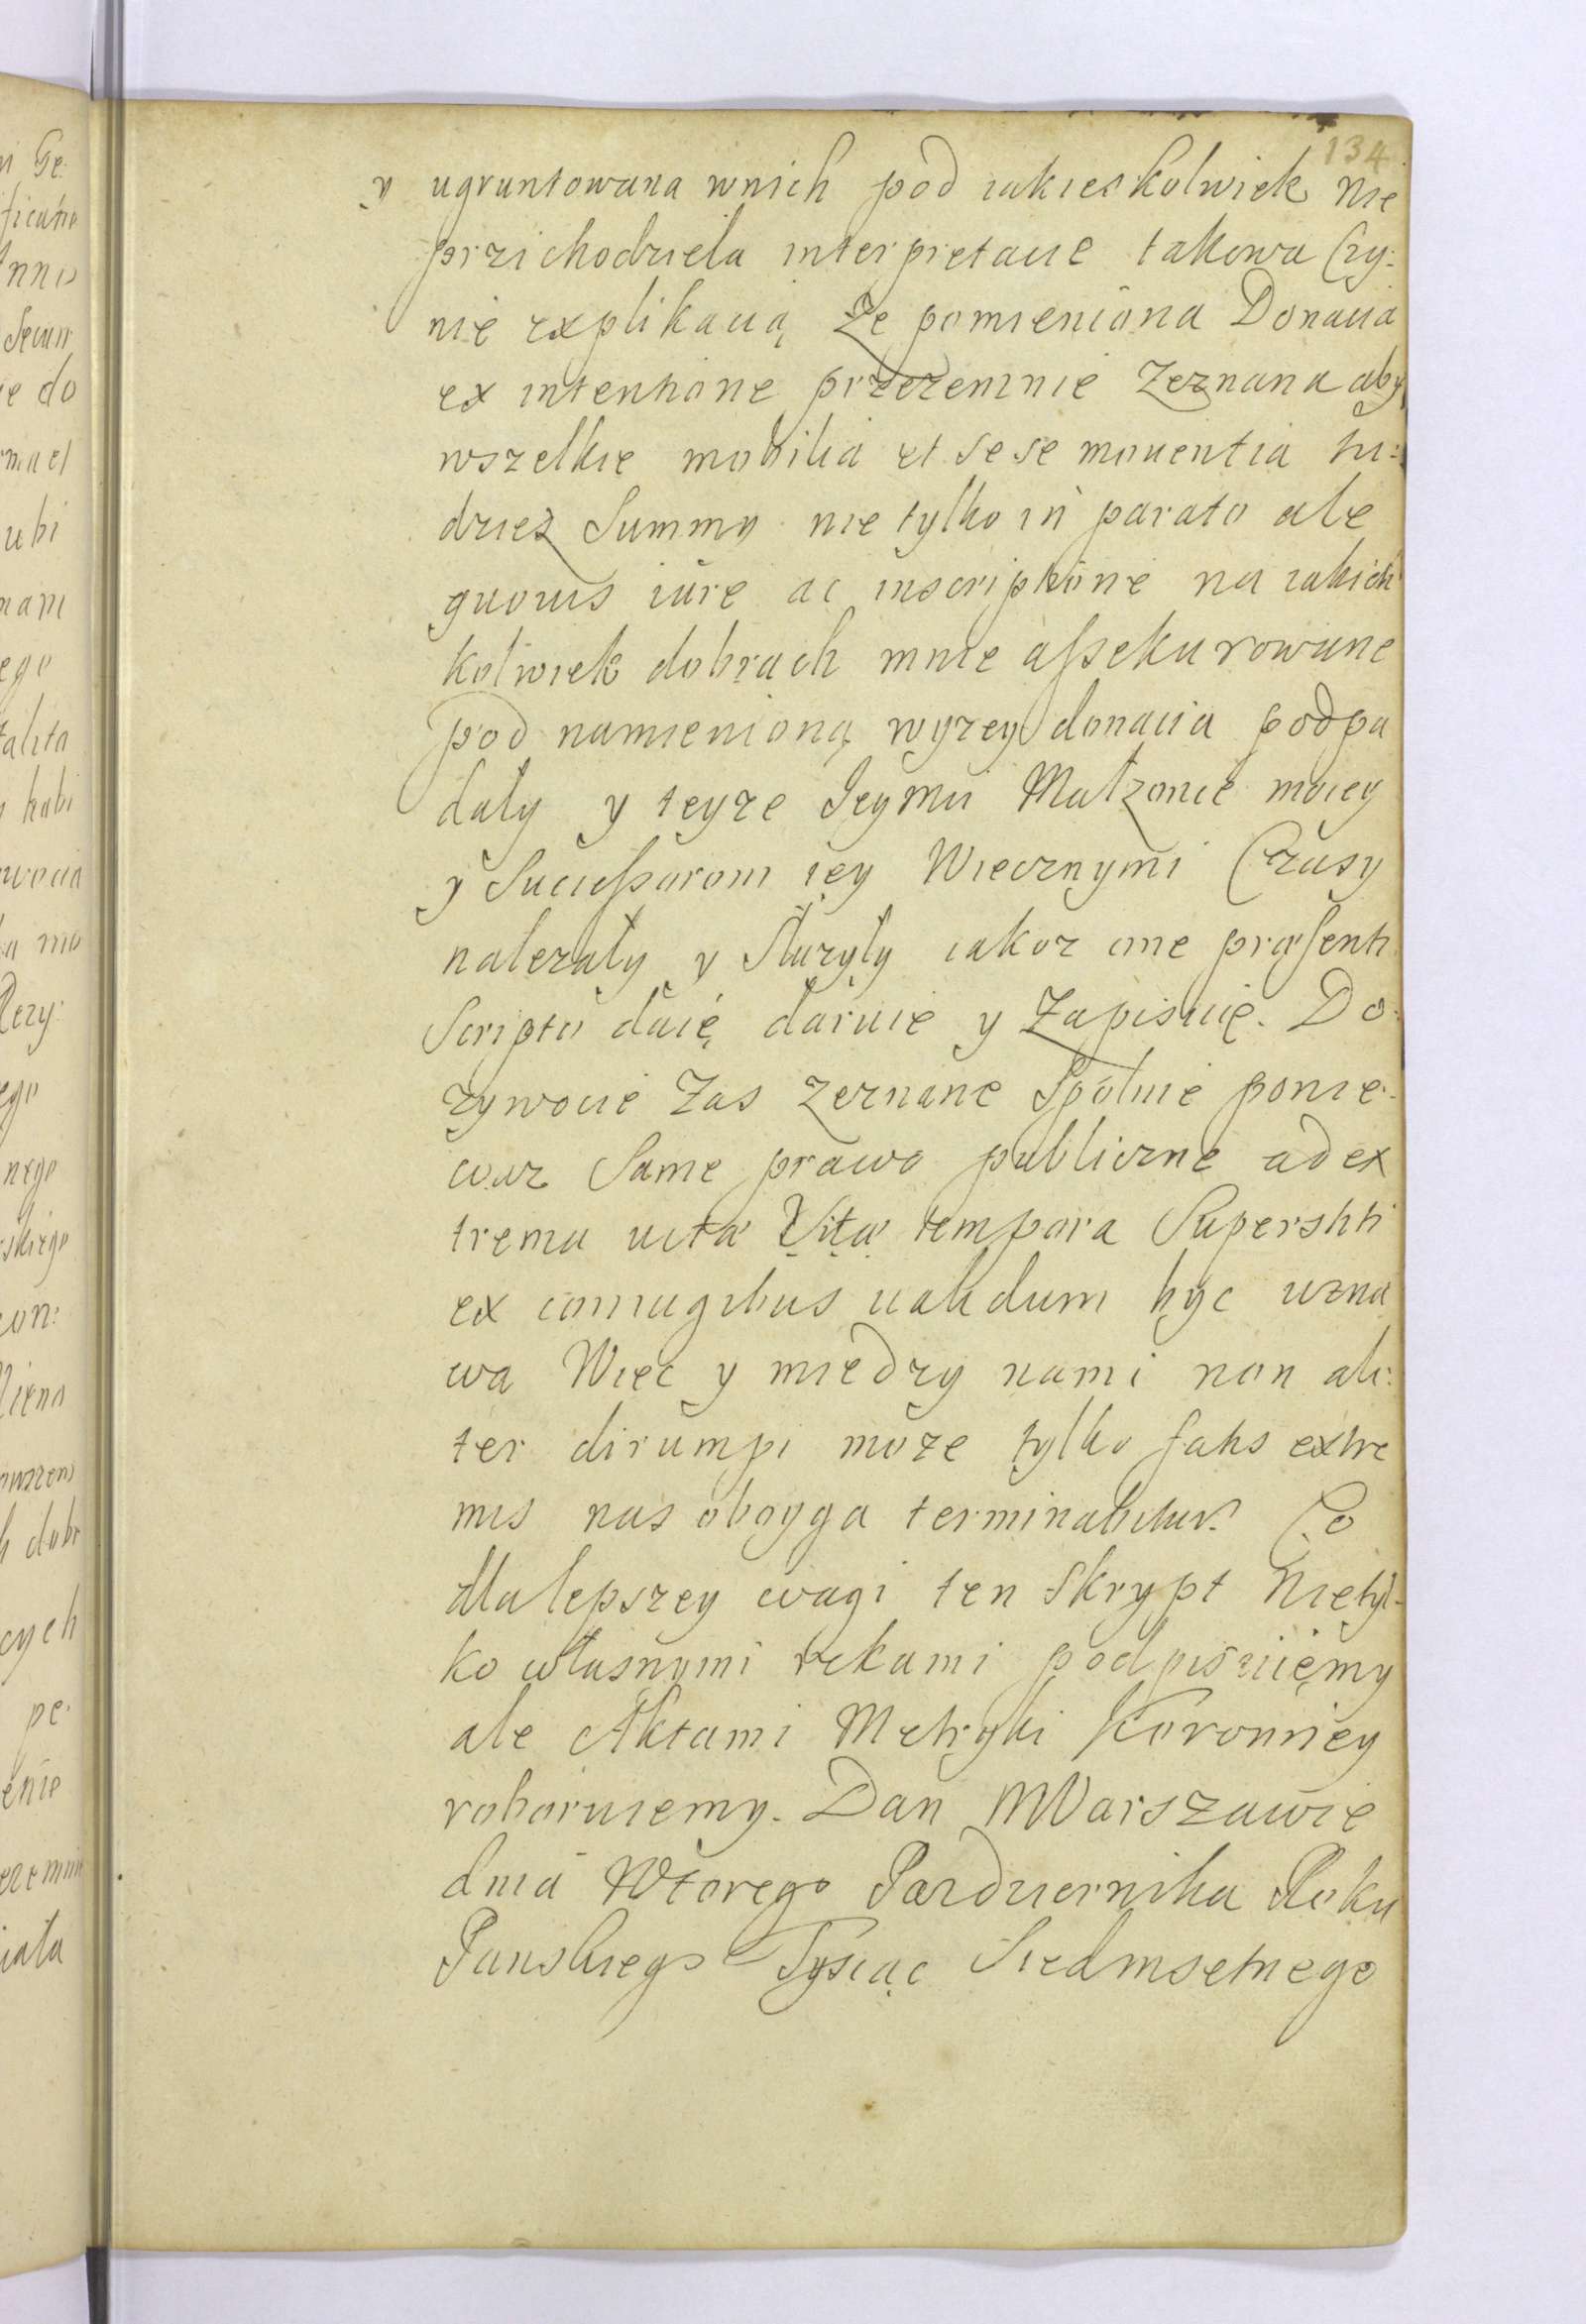 134
y ugruntowana wnich pod iakieskolwiek nie
przichodziela interpretacie takowa Czy:
nie explikacią Ze pomieniona Donacia
ex intentione przezemnie Zeznana aby
wszelkie mobilia et sese mouentia tu:
dziez Summy nie tylko in parato ale
quouis iure ac inscriptione na iakich
kolwiek dobrach mnie assekurowane
pod namienioną wyzey donacia podpa
dały y teyze Jeymci Małzonce moiey
y Successorom iey Wiecznymi Czasy
nalezały y Słuzyły iakoz one præsenti
Scripto daię daruie y Zapisuię. Do:
zywocie Zas zeznane Spolnie ponie:
waz Same prawo publiczne ad ex
trema uitæ Vitæ tempora Superstiti
ex coniugibus ualidum byc uzna
wa Więc y miedzy nami non ali:
ter dirumpi moze tylko fatis extre
mis nas oboyga terminabitur. Co
dla lepszey wagi ten Skrypt Nietyl-
ko własnymi rekami podpisuięmy
ale Aktami Metryki Koronney
roboruiemy. Dan WWarszawie
dnia Wtorego Pazdziernika Roku
Panskiego Tysiąc Siedmsetnego